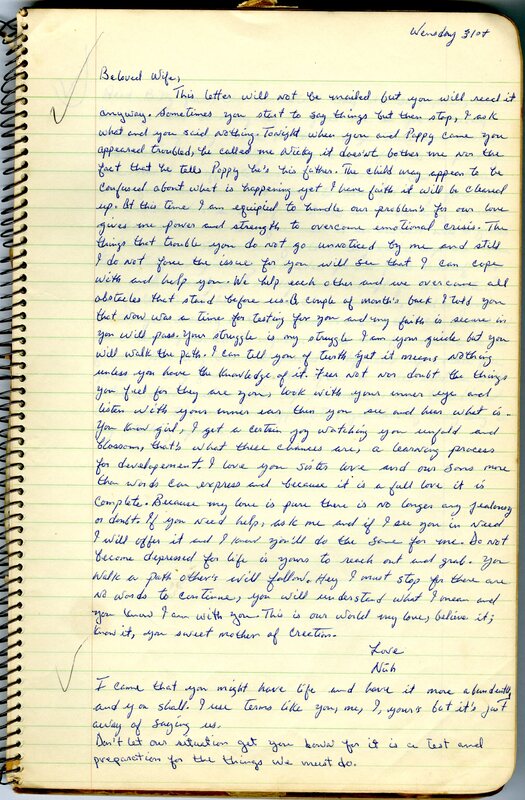 Wensday 31st
Beloved Wife,
This letter will not be mailed but you will read it
anyway. Sometimes you start to say things but then stop, I ask
what and you said nothing. Tonight when you and Poppy came you
appeared troubled, he called me Nicky it doesn't bother me nor the
fact that he tells Poppy he's his father. The child may appear to be
confused about what is happening yet I have faith it will be cleared
up. At this time I am equipted to handle our problem's for our love
gives me power and strength to overcome emotional crisis. The
things that trouble you do not go unnoticed by me and still
I do not force the issue for you will see that I can cope
with and help you. We help each other and we overcome all
obstacles that stand before us. A couple of month's back I told you
that now was a time for testing for you and my faith is secure in
you will pass. Your struggle is my struggle I am your guide but you
will walk the path. I can tell you of truth yet it means nothing
unless you have the knowledge of it. Fear not nor doubt the things
you feel for they are yours, look with your inner eye and
listen with your inner ears then you see and hear what is.
You know girl, I get a certain joy watching you unfold and
blossom, that's what these chances are, a learning process
for developement. I love you sister love and our sons more
than words can express and because it is a full love it is
complete. Because my love is pure there is no longer any jealousy
or doubt. If you need help, ask me and if I see you in need
I will offer it and I know you'll do the same for me. Do not
become depressed for life is yours to reach out and grab. You
walk a path other's will follow. Hey I must stop for there are
no words to continue, you will understand what I mean and
you know I am with you. This is our world my love, believe it;
know it, you sweet mother of Creation.
Love
Nuh
I came that you might have life and have it more abundently
and you shall. I use terms like you, me, I, your's but it's just
away of saying us.
Don't let our situation get you down for it is a test and
preparation for the things we must do.